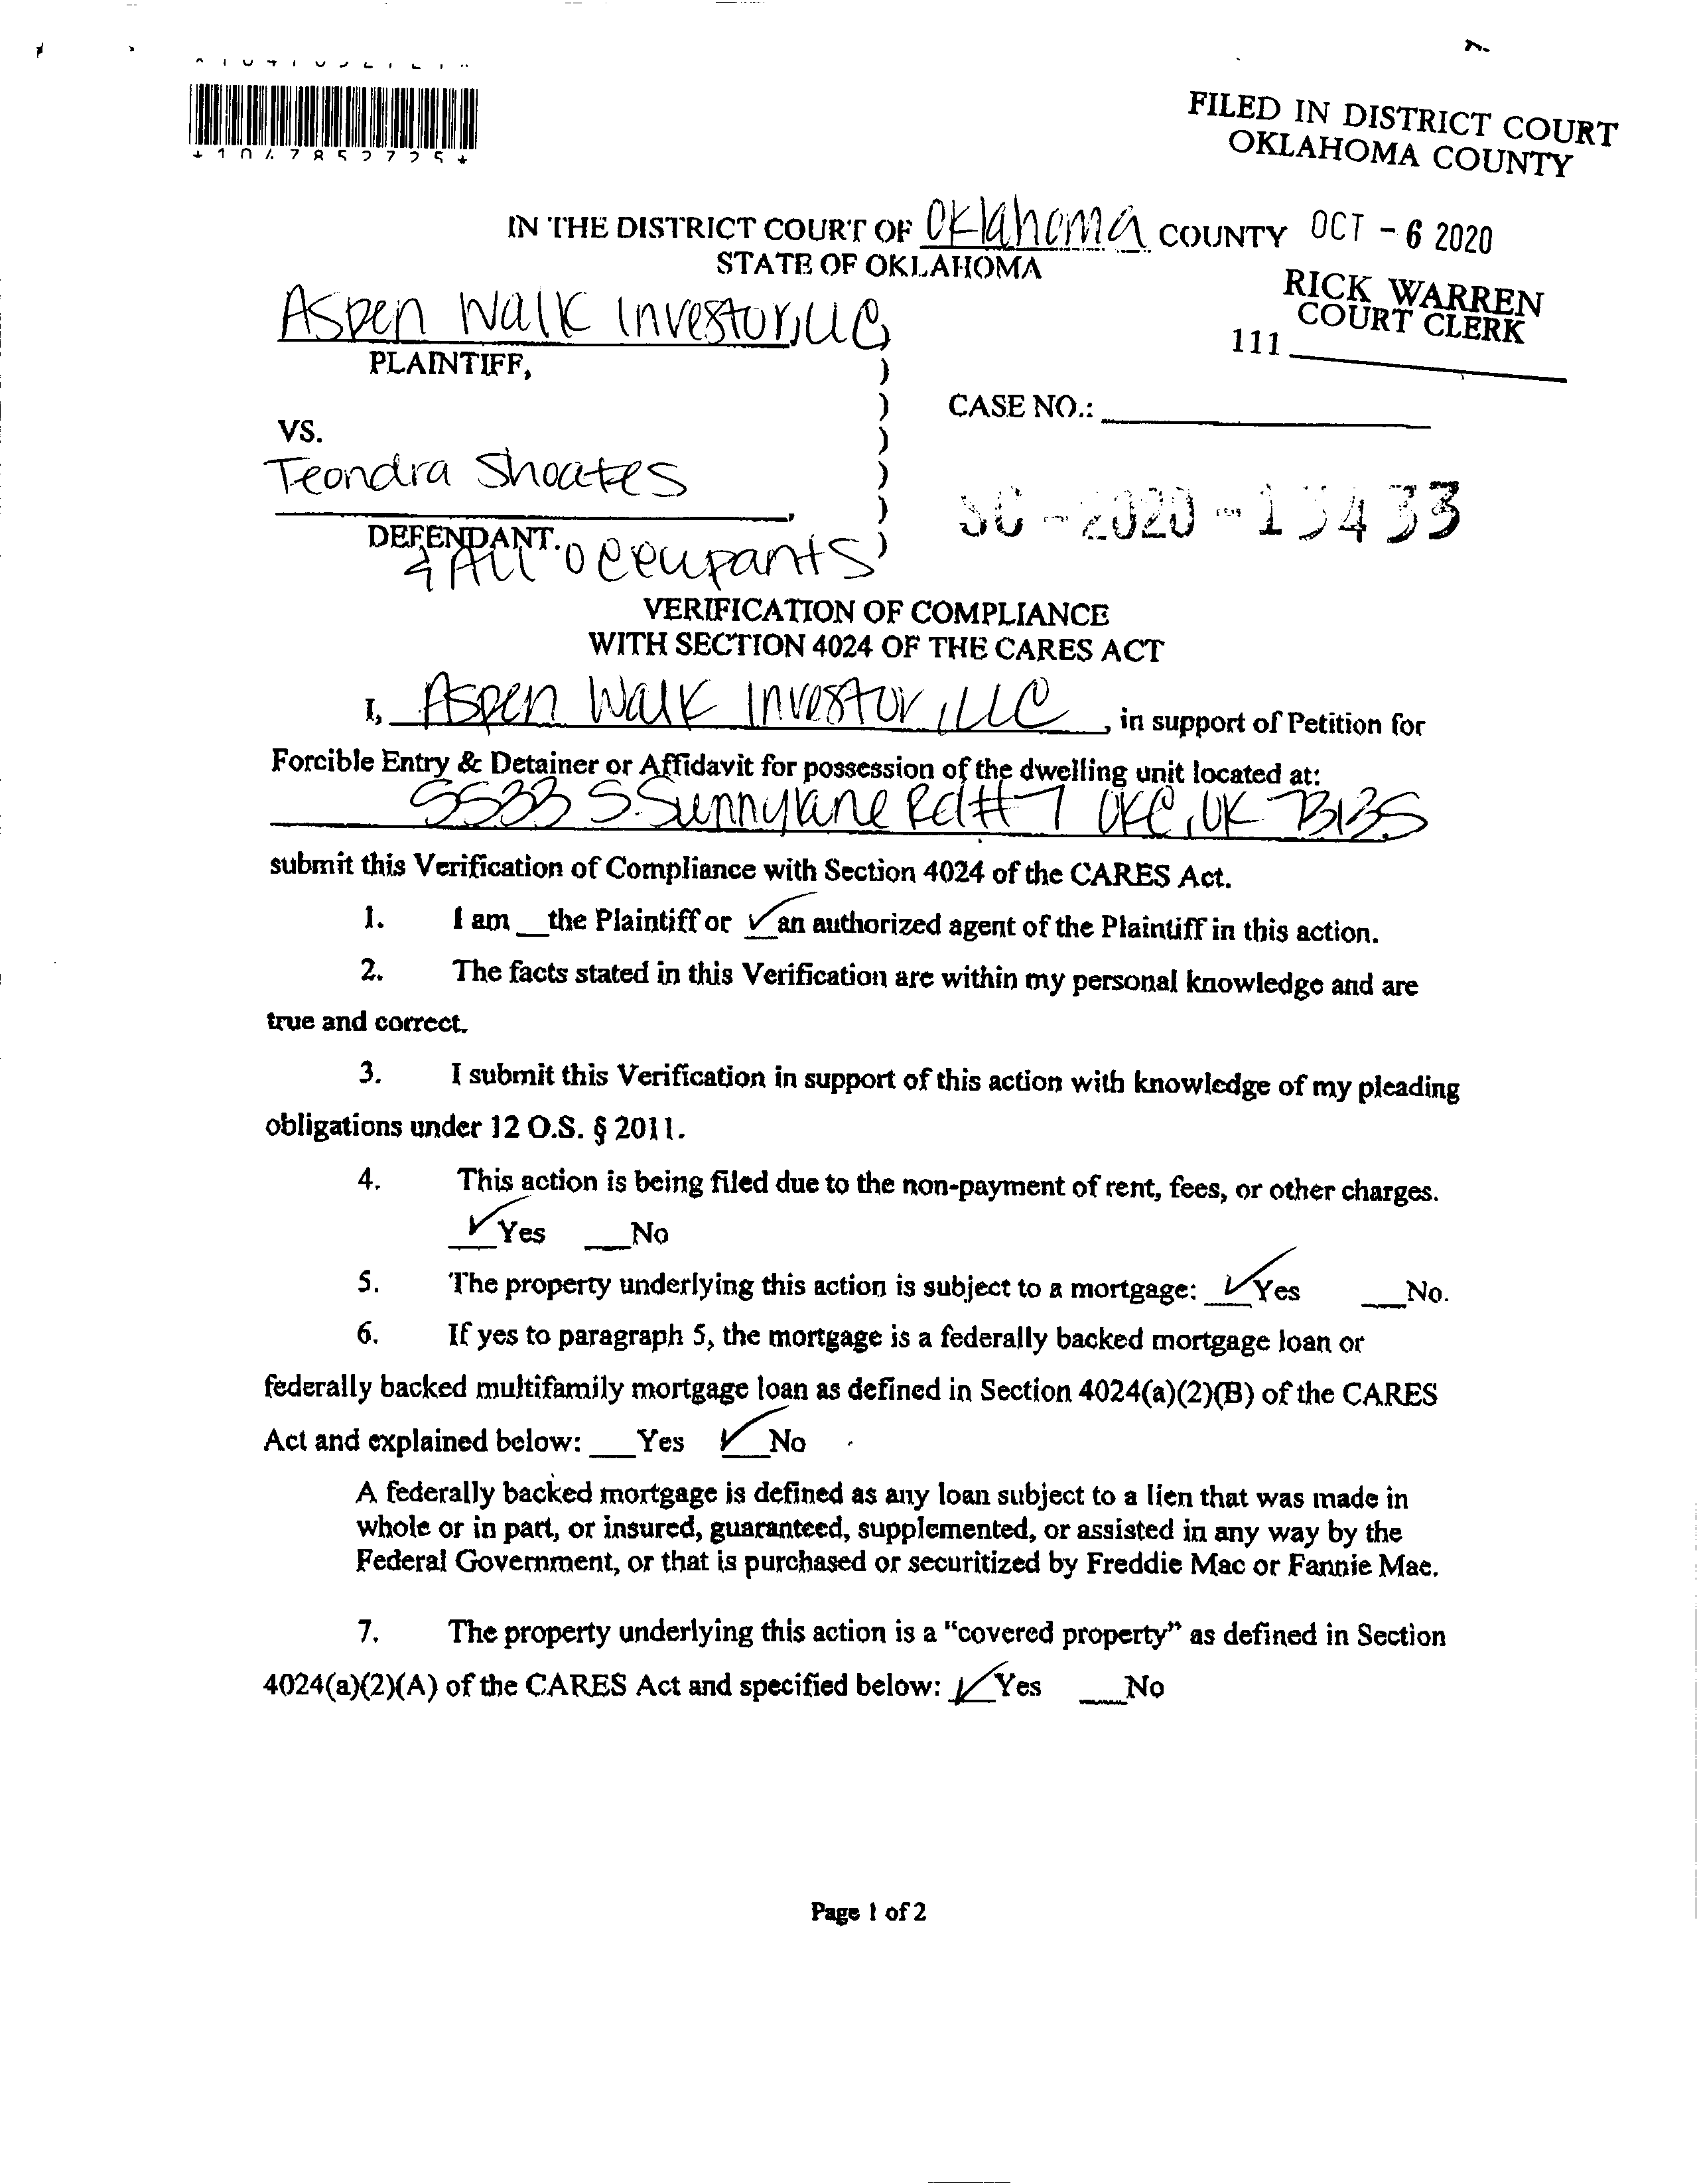 *1047852725*
FILED IN DISTRICT COURT
OKLAHOMA COUNTY
IN THE DISTRICT COURT OF Oklahoma COUNTY OCT - 6 2020
STATE OF OKLAHOMA
RICK WARREN
COURT CLERK
111
Aspen Walk Investor, LLC,
PLAINTIFF, )
) CASE NO.:
VS. )
Teondra Shoates )
) SC - 2020 - 13433
DEFENDANT. )
& All occupants
VERIFICATION OF COMPLIANCE
WITH SECTION 4024 OF THE CARES ACT
I, Aspen Walk Investor, LLC, in support of Petition for
Forcible Entry & Detainer or Affidavit for possession of the dwelling unit located at:
5533 S. Sunnylane Rd #7 OKC, OK 73135
submit this Verification of Compliance with Section 4024 of the CARES Act.
1. I am __the Plaintiff or ✓an authorized agent of the Plaintiff in this action.
2. The facts stated in this Verification are within my personal knowledge and are
true and correct.
3. I submit this Verification in support of this action with knowledge of my pleading
obligations under 12 O.S. § 2011.
4. This action is being filed due to the non-payment of rent, fees, or other charges.
✓Yes __No
5. The property underlying this action is subject to a mortgage: ✓Yes __No.
6. If yes to paragraph 5, the mortgage is a federally backed mortgage loan or
federally backed multifamily mortgage loan as defined in Section 4024(a)(2)(B) of the CARES
Act and explained below: __Yes ✓No
A federally backed mortgage is defined as any loan subject to a lien that was made in
whole or in part, or insured, guaranteed, supplemented, or assisted in any way by the
Federal Government, or that is purchased or securitized by Freddie Mac or Fannie Mae.
7. The property underlying this action is a "covered property" as defined in Section
4024(a)(2)(A) of the CARES Act and specified below: ✓Yes __No
Page 1 of 2